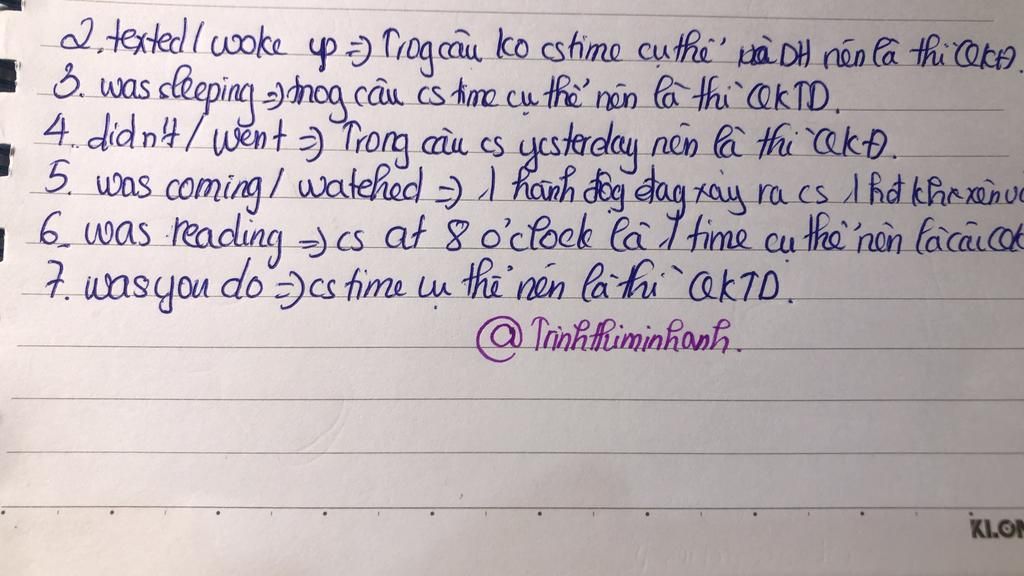 2. texted / woke up => Trog câu ko cs time cụ thể và DH nên là thì QKĐ.
3. was sleeping => trog câu cs time cụ thể nên là thì QKTD.
4. didn't / went => Trong câu cs yesterday nên là thì QKĐ.
5. was coming / watched => 1 hành độg đag xảy ra cs 1 hđ khác xen và
6. was reading => cs at 8 o'clock là 1 time cụ thể nên là câu QK
7. was you do => cs time cụ thể nên là thì QKTD.
@Trinhthiminhanh.
KLON